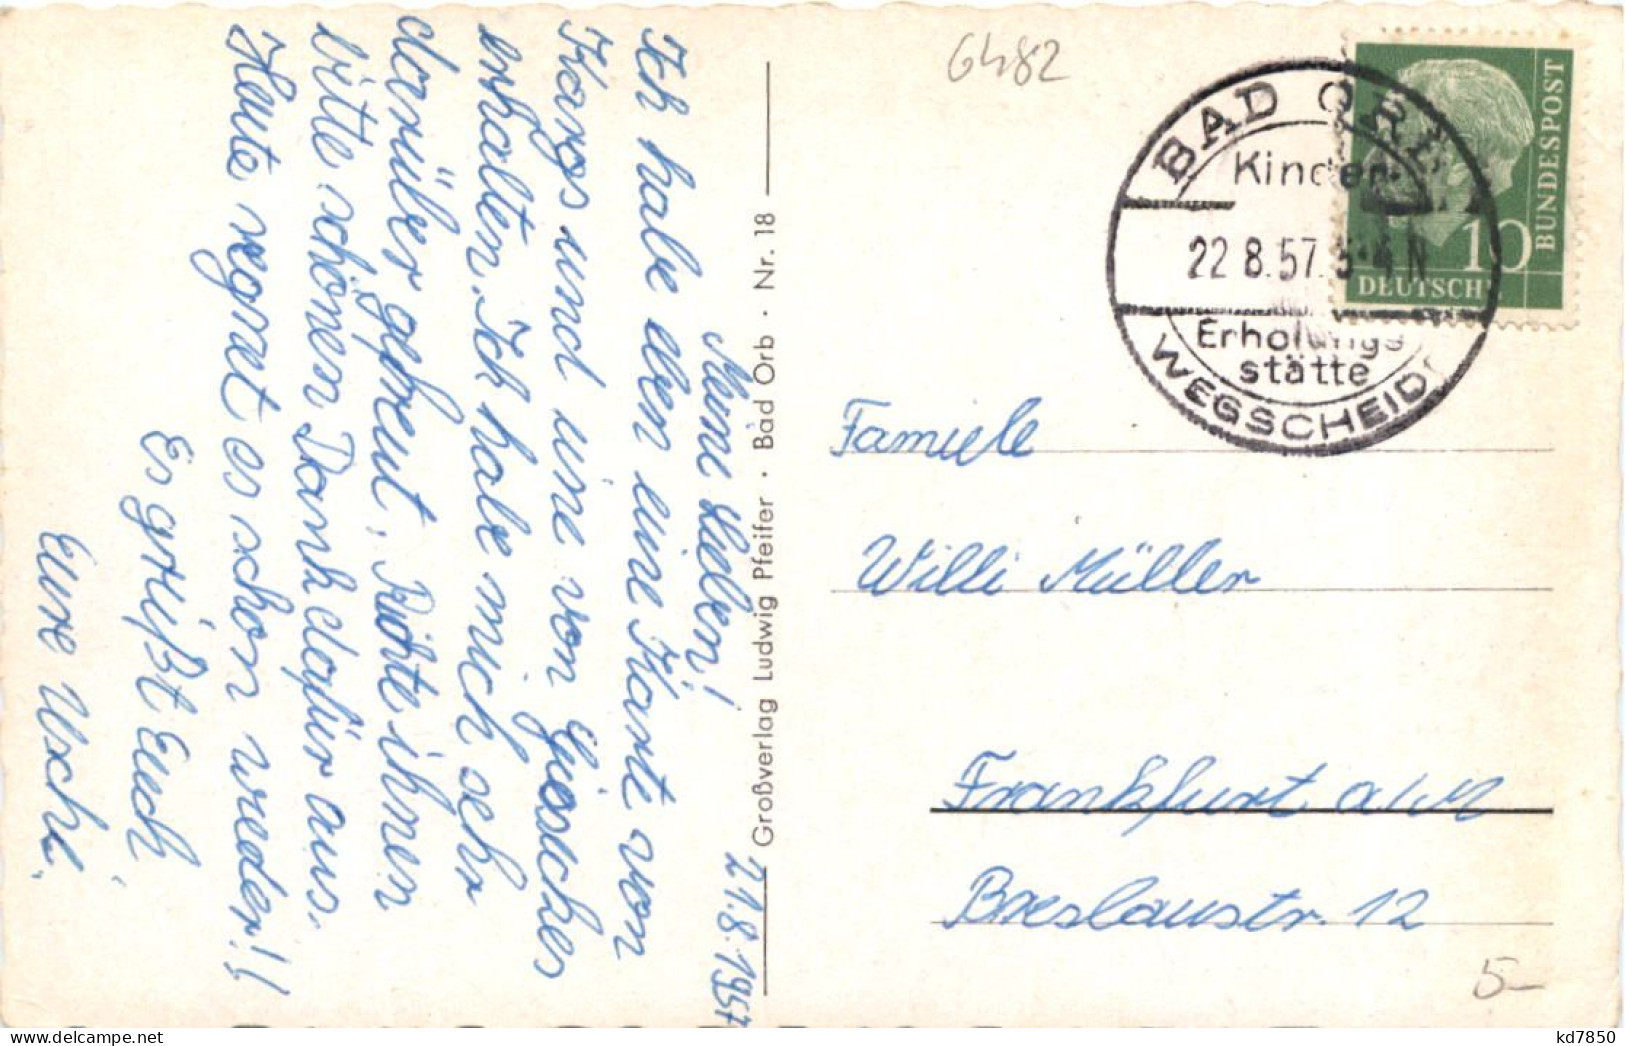 21.8.1957
Meine Lieben!
Ich habe den eine Karte von
Kargs und eine von
erhalten. Ich habe mich sehr
darüber gefreut. Richte ihnen
bitte schönen Dank dafür aus.
Heute regnet es schon wieder!!
Es grüßt Euch
Eure Uschi.
Großverlag Ludwig Pfeiffer · Bad Orb · Nr. 18
6482
BAD ORB
Kinder
22.8.57.
Erholungs
stätte
WEGSCHEIDE
10
DEUTSCHE
BUNDESPOST
Familie
Willi Müller
Frankfurt a/M
Breslaustr. 12
5-
kd7850